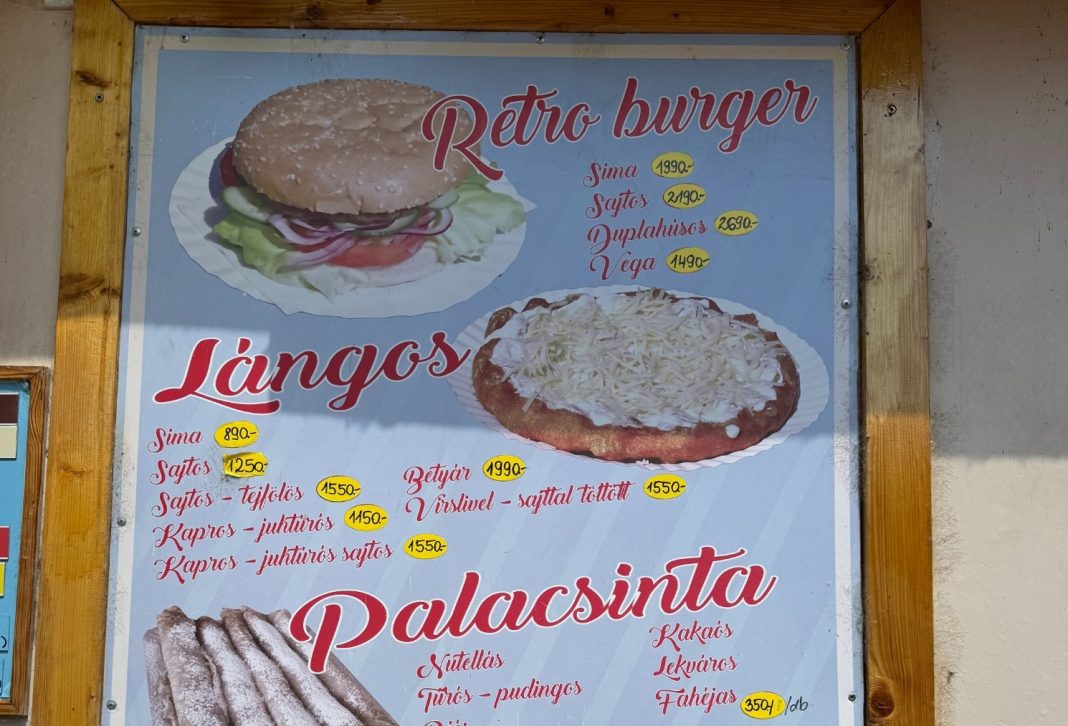 Retro burger
Sima 1990.-
Sajtos 2190.-
Duplahúsos 2690.-
Vega 1490.-
Lángos
Sima 890.-
Sajtos 1250.-
Sajtos - tejfölös 1550.-
Kapros - juhtúrós 1150.-
Kapros - juhtúrós sajtos 1550.-
Betyár 1990.-
Virslivel - sajttal töltött 1550.-
Palacsinta
Nutellás
Túrós - pudingos
Kakaós
Lekváros
Fahéjas 350 /db